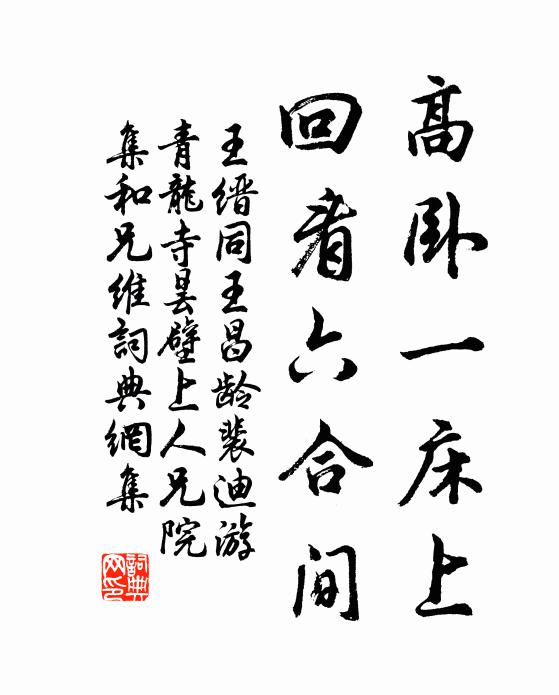 高卧一床上
回看六合间
王缙同王昌龄裴迪游
青龍寺昙壁上人兄院
集和兄维詞典網集
詞典网印